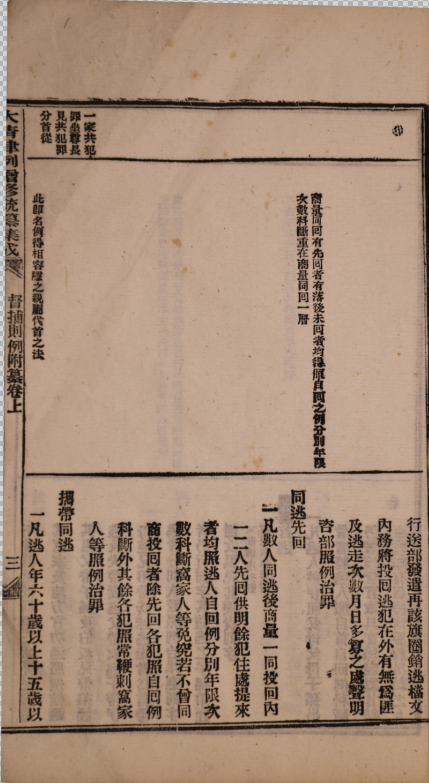 行送部發遣再該旗圈銷逃檔文
內務將投回逃犯在外有無爲匪
及逃走次數月日多寡之處聲明
咨部照例治罪
同逃先回
一凡數人同逃後商量一同投回內
一二人先回供明餘犯住處提來
者均照逃人自回例分別年限次
數科斷窩家人等免究若不曾同
商投回者除先回各犯照自回例
科斷外其餘各犯照常鞭刺窩家
人等照例治罪
攜帶同逃
一凡逃人年六十歲以上十五歲以
商量同回有先回者有落後未回者均得照自回之例分別年限
次數科斷重在商量同回一層
此卽名例得相容隱之親屬代首之法
一家共犯
罪坐尊長
見共犯罪
分首從
大清律例增修統纂集成
督捕則例附纂卷上
三